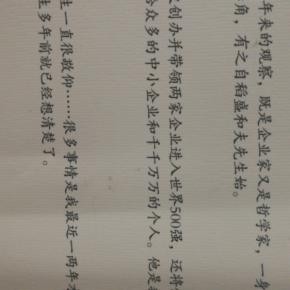 年来的观察，既是企业家又是哲学家，一身
角，有之自稻盛和夫先生始。
创办并带领两家企业进入世界500强，还将
众多的中小企业和千千万万的个人。他是
生一直很敬仰……很多事情是我最近一两年才
生多年前就已经想清楚了。